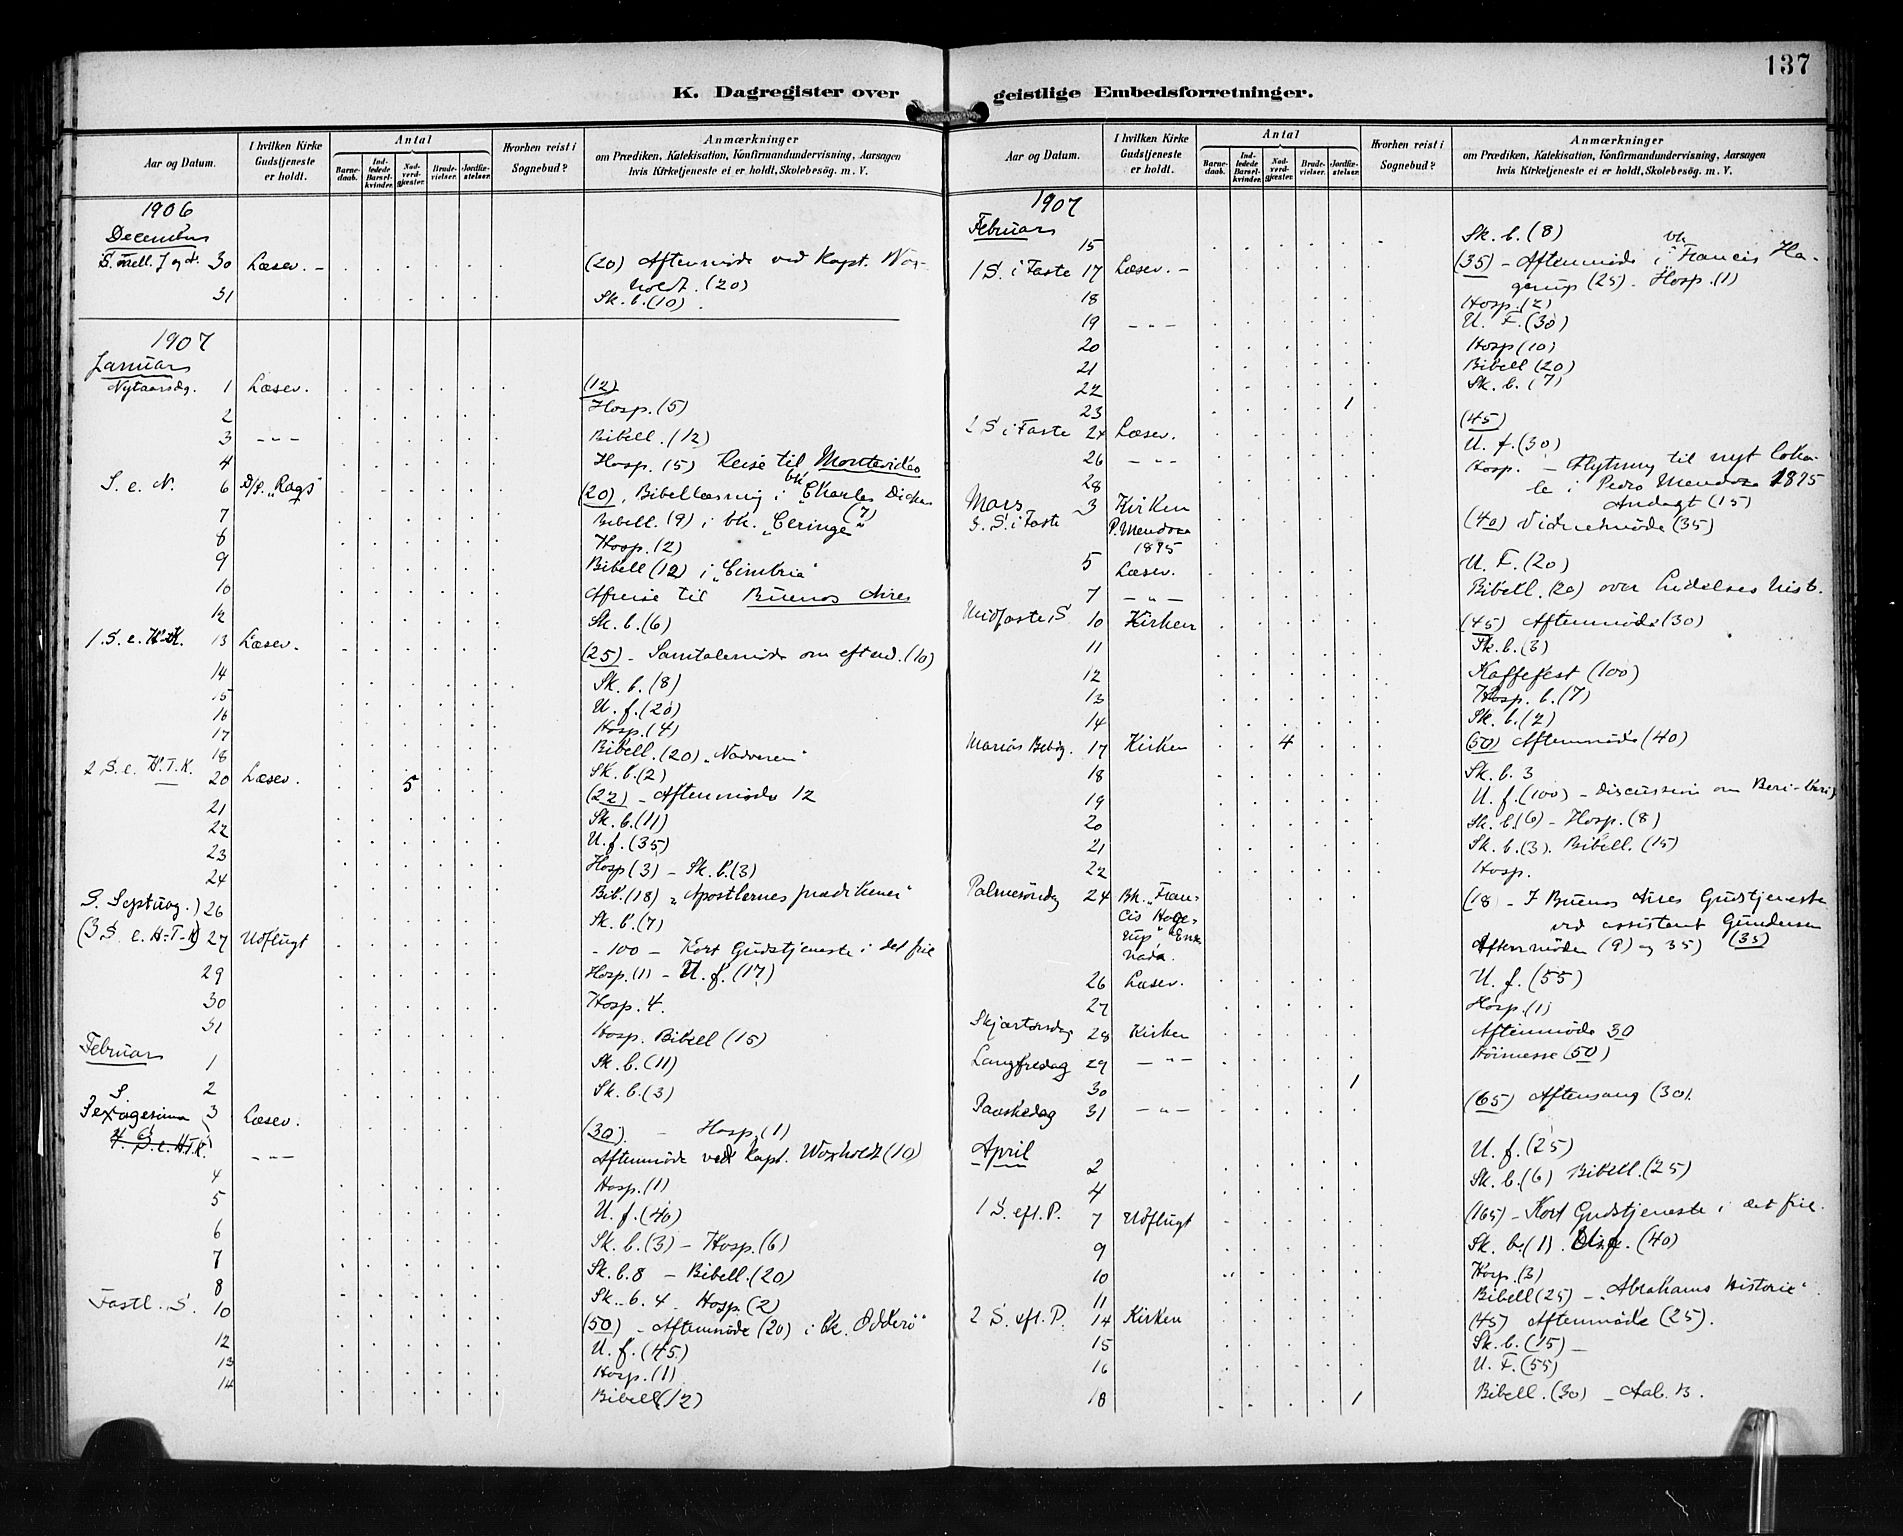 137
K. Dagregister over geistlige Embedsforretninger.
Aar og Datum.
I hvilken Kirke Gudstjeneste er holdt.
Antal
Barnedaab.
Indledede Barselkvinder.
Nadverdgjæster.
Brudevielser.
Jordfæstelser.
Hvorhen reist i Sognebud?
Anmærkninger
om Prædiken, Katekisation, Konfirmandundervisning, Aarsagen
hvis Kirketjeneste ei er holdt, Skolebesøg. m. V.
1906
December
S. mell. J og N. 30 Læsev. - (20) Aftenmøde ved Kapt. Wox-
holt. (20)
31 Sk. b. (10).
1907
Januar
Nytaarsdg. 1 Læsev. (12)
2 Hosp. (5)
3 - - - Bibell. (12)
4 Hosp. (5) Reise til Montevideo
S. e. N. 6 D/S. „Rags" (20). Bibellæsning i bk „Charles Dicken
(7)
7 Bibell. (9) i bk. „Ceringe"
8 Hosp. (2)
9 Bibell (12) i „Cimbria"
10 Afreise til Buenos Aires
12 Sk. b. (6)
1. S. e. H.t.K. 13 Læsev. (25) - Samtalemøde om efterd. (10)
14 Sk. b. (8)
15 U. f. (20)
16 Hosp. (4)
17 Bibell. (20) „Nadveren"
18 Sk. b. (2)
2 S. e. H.T.K. 20 Læsev. 5 (22) - Aftenmøde 12
21 Sk. b. (11)
22 U. f. (35)
23 Hosp (3) - Sk. b. (3)
24 Bib. (18) „Apostlernes prædikener"
S. Septuag.) 26 Sk. b. (7)
(3 S. e. H-T-K) 27 Udflugt - 100 - Kort Gudstjeneste i det frie
29 Hosp. (1) - U. f. (17)
30 Hosp. 4.
31 Hosp. Bibell (15)
Februar
1 Sk. b. (11)
2 Sk. b. (3)
S.
Sexagesima 3 Læsev. (30). - Hosp. (1)
4. S. e. H.T.K. - - - Aftenmøde ved Kapt. Woxholdt (10)
4 Hosp. (1)
5 U. f. (40)
6 Sk. b. (3) - Hosp. (6)
7 Sk. b. 8 - Bibell. (20)
8 Sk. b. 4. Hosp. (2)
Fastl. S. 10 (50) - Aftenmøde (20) i bk. Odderø"
12 U. f. (45)
13 Hosp. (1)
14 Bibell (12)
1907
Februar
15 Sk. b. (8)
1 S. i Faste 17 Læsev. - (35) - Aftenmøde i bk Francis Ha-
gerup (25). Hosp. (1)
18 Hosp. (2)
19 - - - U. F. (30)
20 Hosp (10)
21 Bibell (20)
22 Sk. b. (7)
23 1
2 S i Faste 24 Læsev. (45)
26 - - - U. f. (30)
28 Hosp. - Flytning til nyt loka-
le i Pedro Mendoza 1895
Andagt (15)
Mars 3 Kirken (40) Vidnemøde (35)
3. S. i Faste P. Mendoza
1895
5 Læsev. U. F. (20)
7 - „ - Bibell. (20) over Lidelses hist.
Midfaste S 10 Kirken (45) Aftenmøde (30)
11 Sk. b. (3)
12 Kaffefest (100)
13 Hosp. b. (7)
14 Sk. b. (2)
Mariæ Bebdg. 17 Kirken 4 (50) Aftenmøde (40)
18 Sk. b. 3
19 U. f. (100) - Discussion om Beri-beri)
20 Sk. b. (6) - Hosp. (8)
21 Sk. b. (3). Bibell. (15)
22 Hosp.
Palmesøndg 24 Bk. „Fran- (18 - I Buenos Aires Gudstjeneste
cis Hage- ved assistent Gundersen
rup", Ense- Aftenmøder (9) og 35) (35)
nada.
26 Læsev. U. f. (55)
27 Hosp. (1)
Skjærtorsdag 28 Kirken Aftenmøde 30
Langfredag 29 - „ - Høimesse (50)
30 1
Paaskedag 31 - „ - (65) Aftensang (30).
April
2 U. f. (25)
4 Sk. b. (6) Bibell. (25)
1 S. eft. P. 7 Udflugt (165) - Kort Gudstjeneste i det frie.
9 Sk. b. (1). U. f. (40)
10 Hosp. (3)
11 Bibell (25) - „Abrahams Historie"
2 S. eft. P. 14 Kirken (45) Aftenmøde (25).
15 Sk. b. (15) -
16 U. F. (55)
18 1 Bibell. (30) - Aab. B.